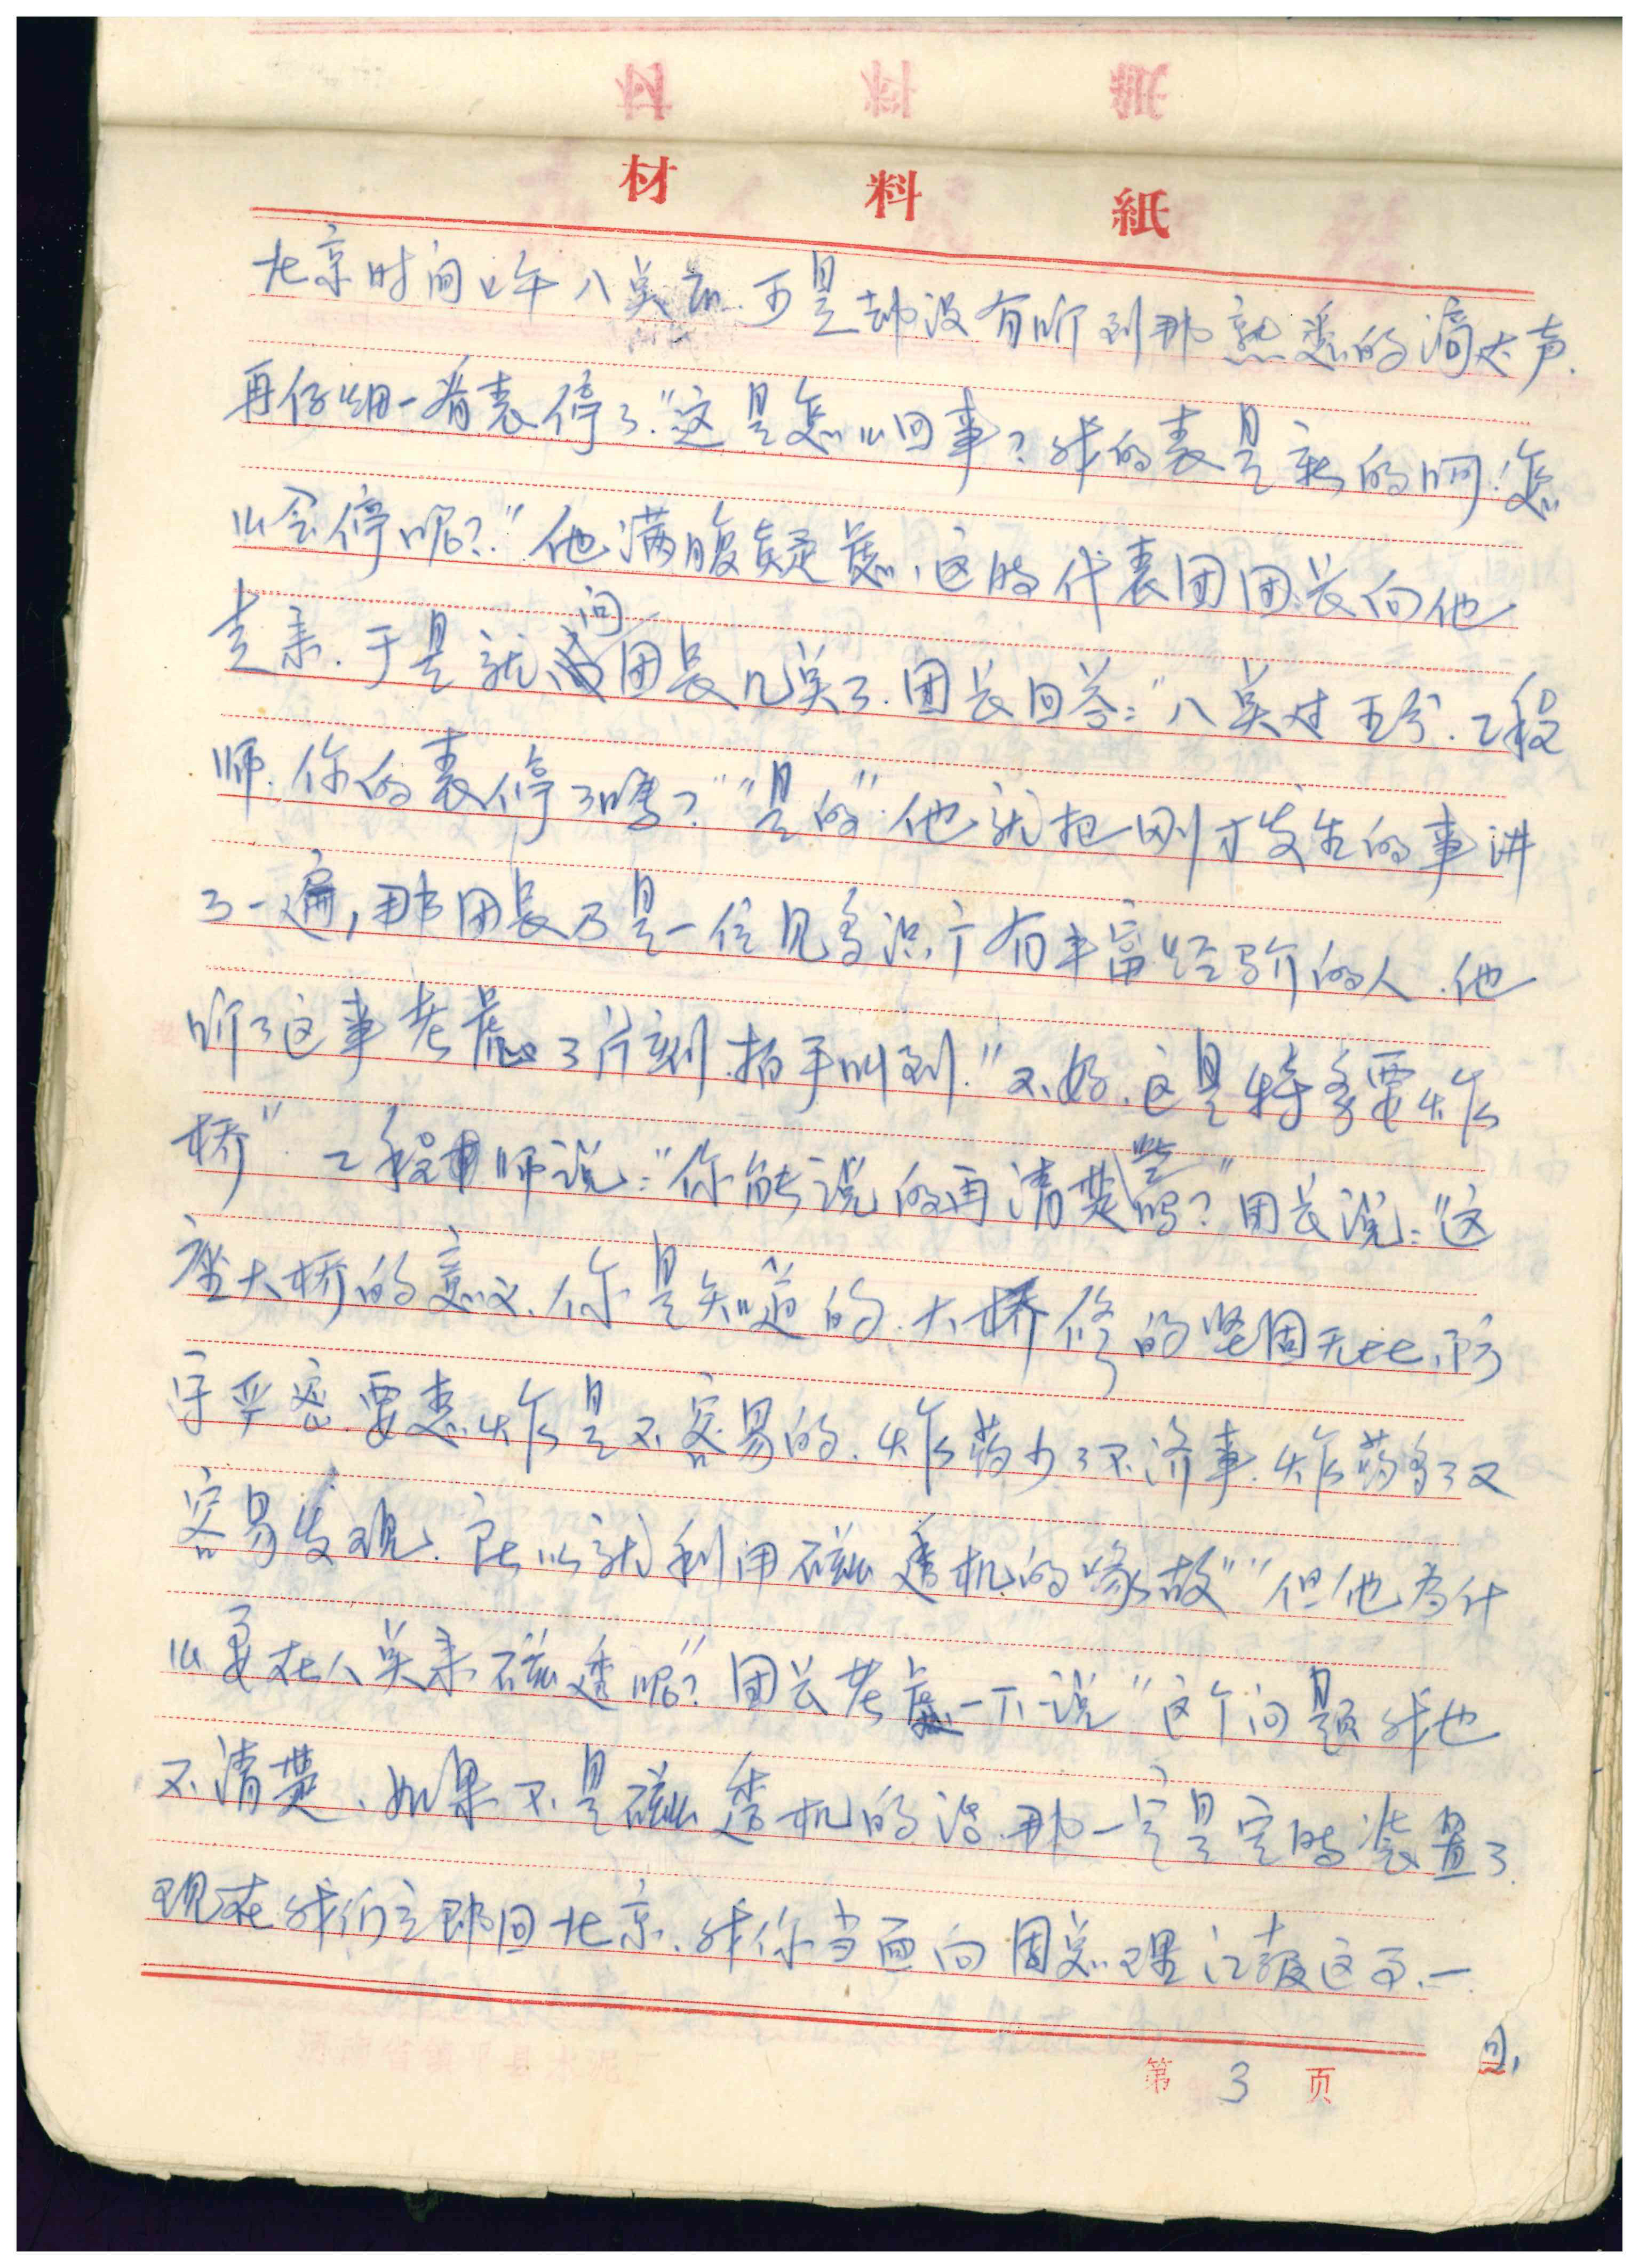 材料紙
北京时间上午八点正.可是却没有听到那熟悉的滴达声.
再仔细一看表停了."这是怎么回事?我的表是新的啊!怎
么会停呢?."他满腹疑虑,这时代表团团长向他
走来.于是就问团长几点了.团长回答:"八点过五分.工程
师.你的表停了吗?""是的".他就把刚才发生的事讲
了一遍,那团长乃是一位见多识广有丰富经验的人.他
听了这事考虑了片刻.拍手叫到."不好.这是特务要炸
桥".工程师说:"你能说的再清楚些吗?"团长说:"这
座大桥的意义.你是知道的.大桥修的坚固无比,防
守严密.要想炸是不容易的.炸药少了不济事.炸药多了又
容易发现.所以就利用磁透机的缘故""但他为什
么要在八点来磁透呢?"团长考虑一下说"这个问题我也
不清楚.如果不是磁透机的话.那一定是定时装置了.
现在我们立即回北京.我你当面向周总理汇报这了.一
第 3 页